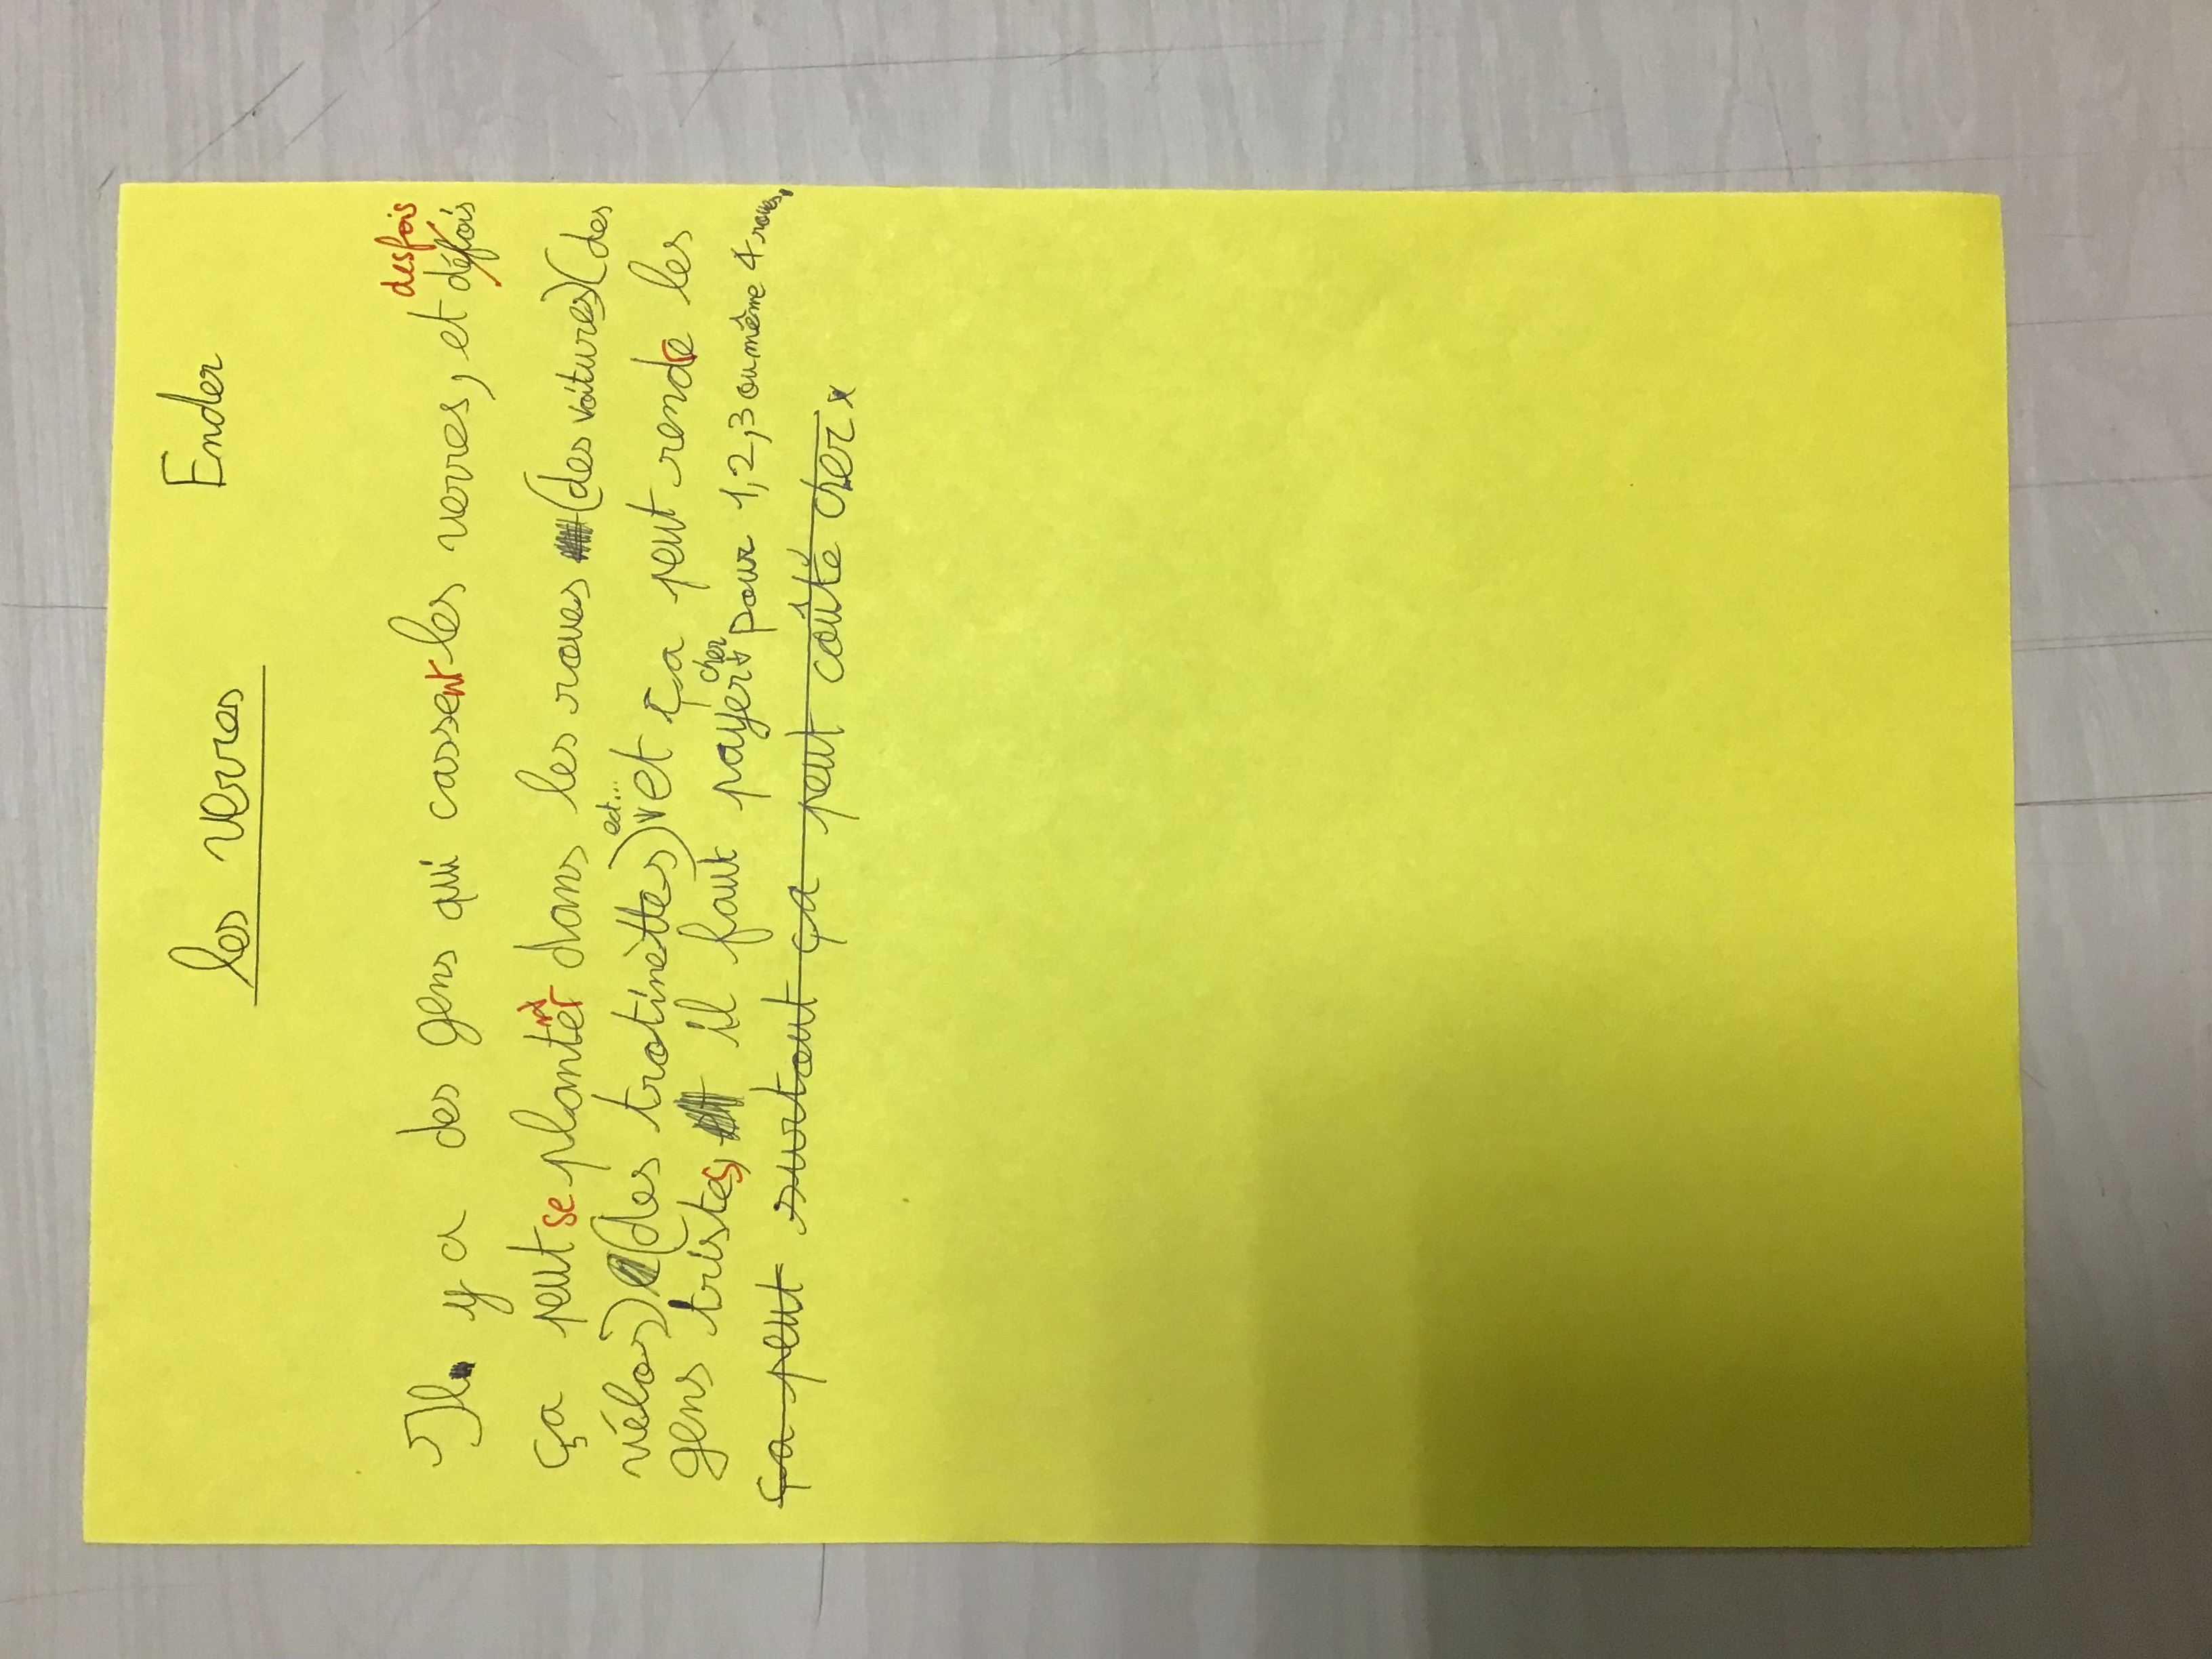 les verres Ender
Il y a des gens qui cassent les verres, et défois desfois
ça peut se planter dans les roues (des voitures) (des
vélos) (des trotinèttes) ect... et ça peut rendre les
gens tristes, il faut payer cher pour 1, 2, 3 ou même 4 roues,
ça peut surtout ça peut coûté cher x